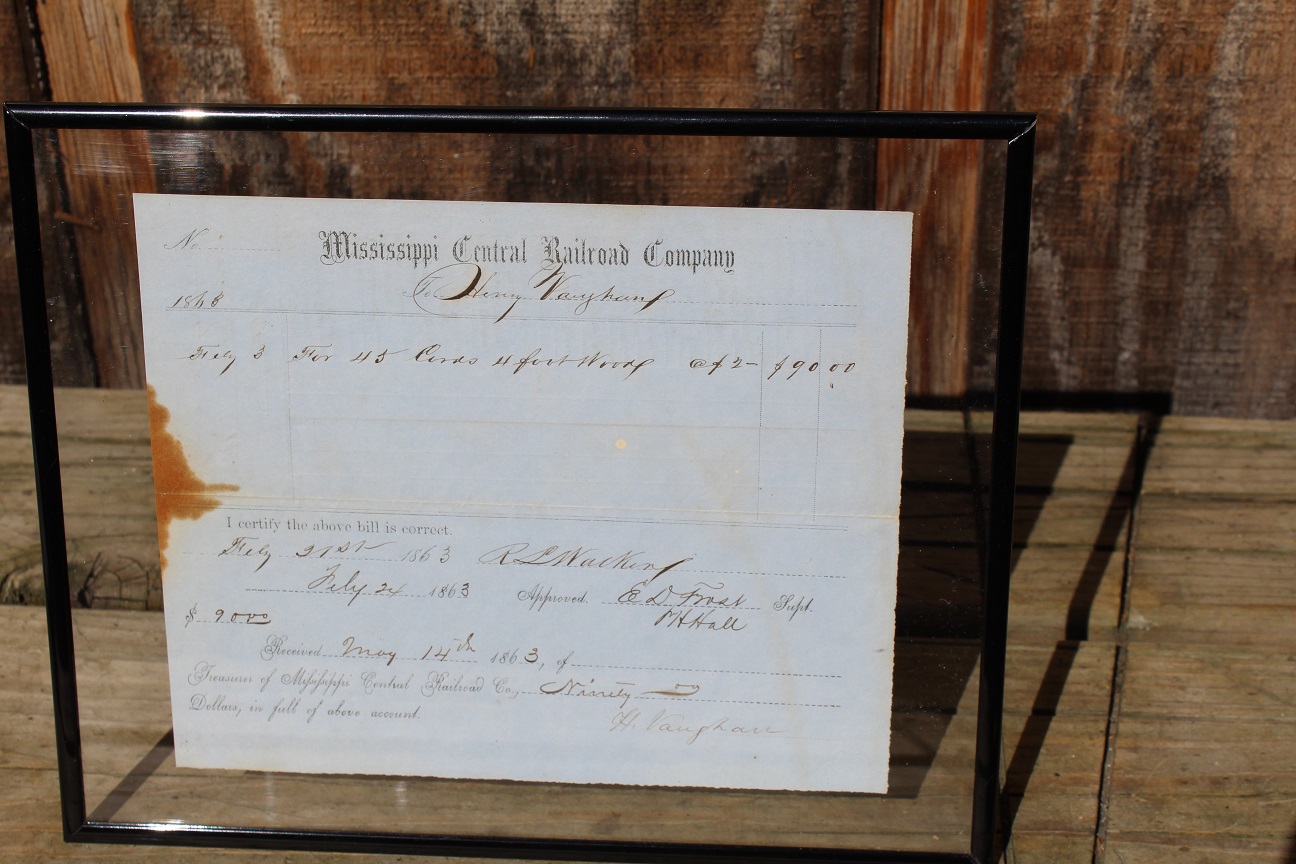 No.
Mississippi Central Railroad Company
To Henry Vaughan
1863
Feby 3 For 45 Cords 4 foot Wood @ $2- $90 00
I certify the above bill is correct.
Feby 21st 1863 R L Watkins
Feby 24 1863 Approved. E D Frost Supt.
$ 90.00 Hall
Received May 14th 1863, of
Treasurer of Mississippi Central Railroad Co., Ninety
Dollars, in full of above account.
H. Vaughan